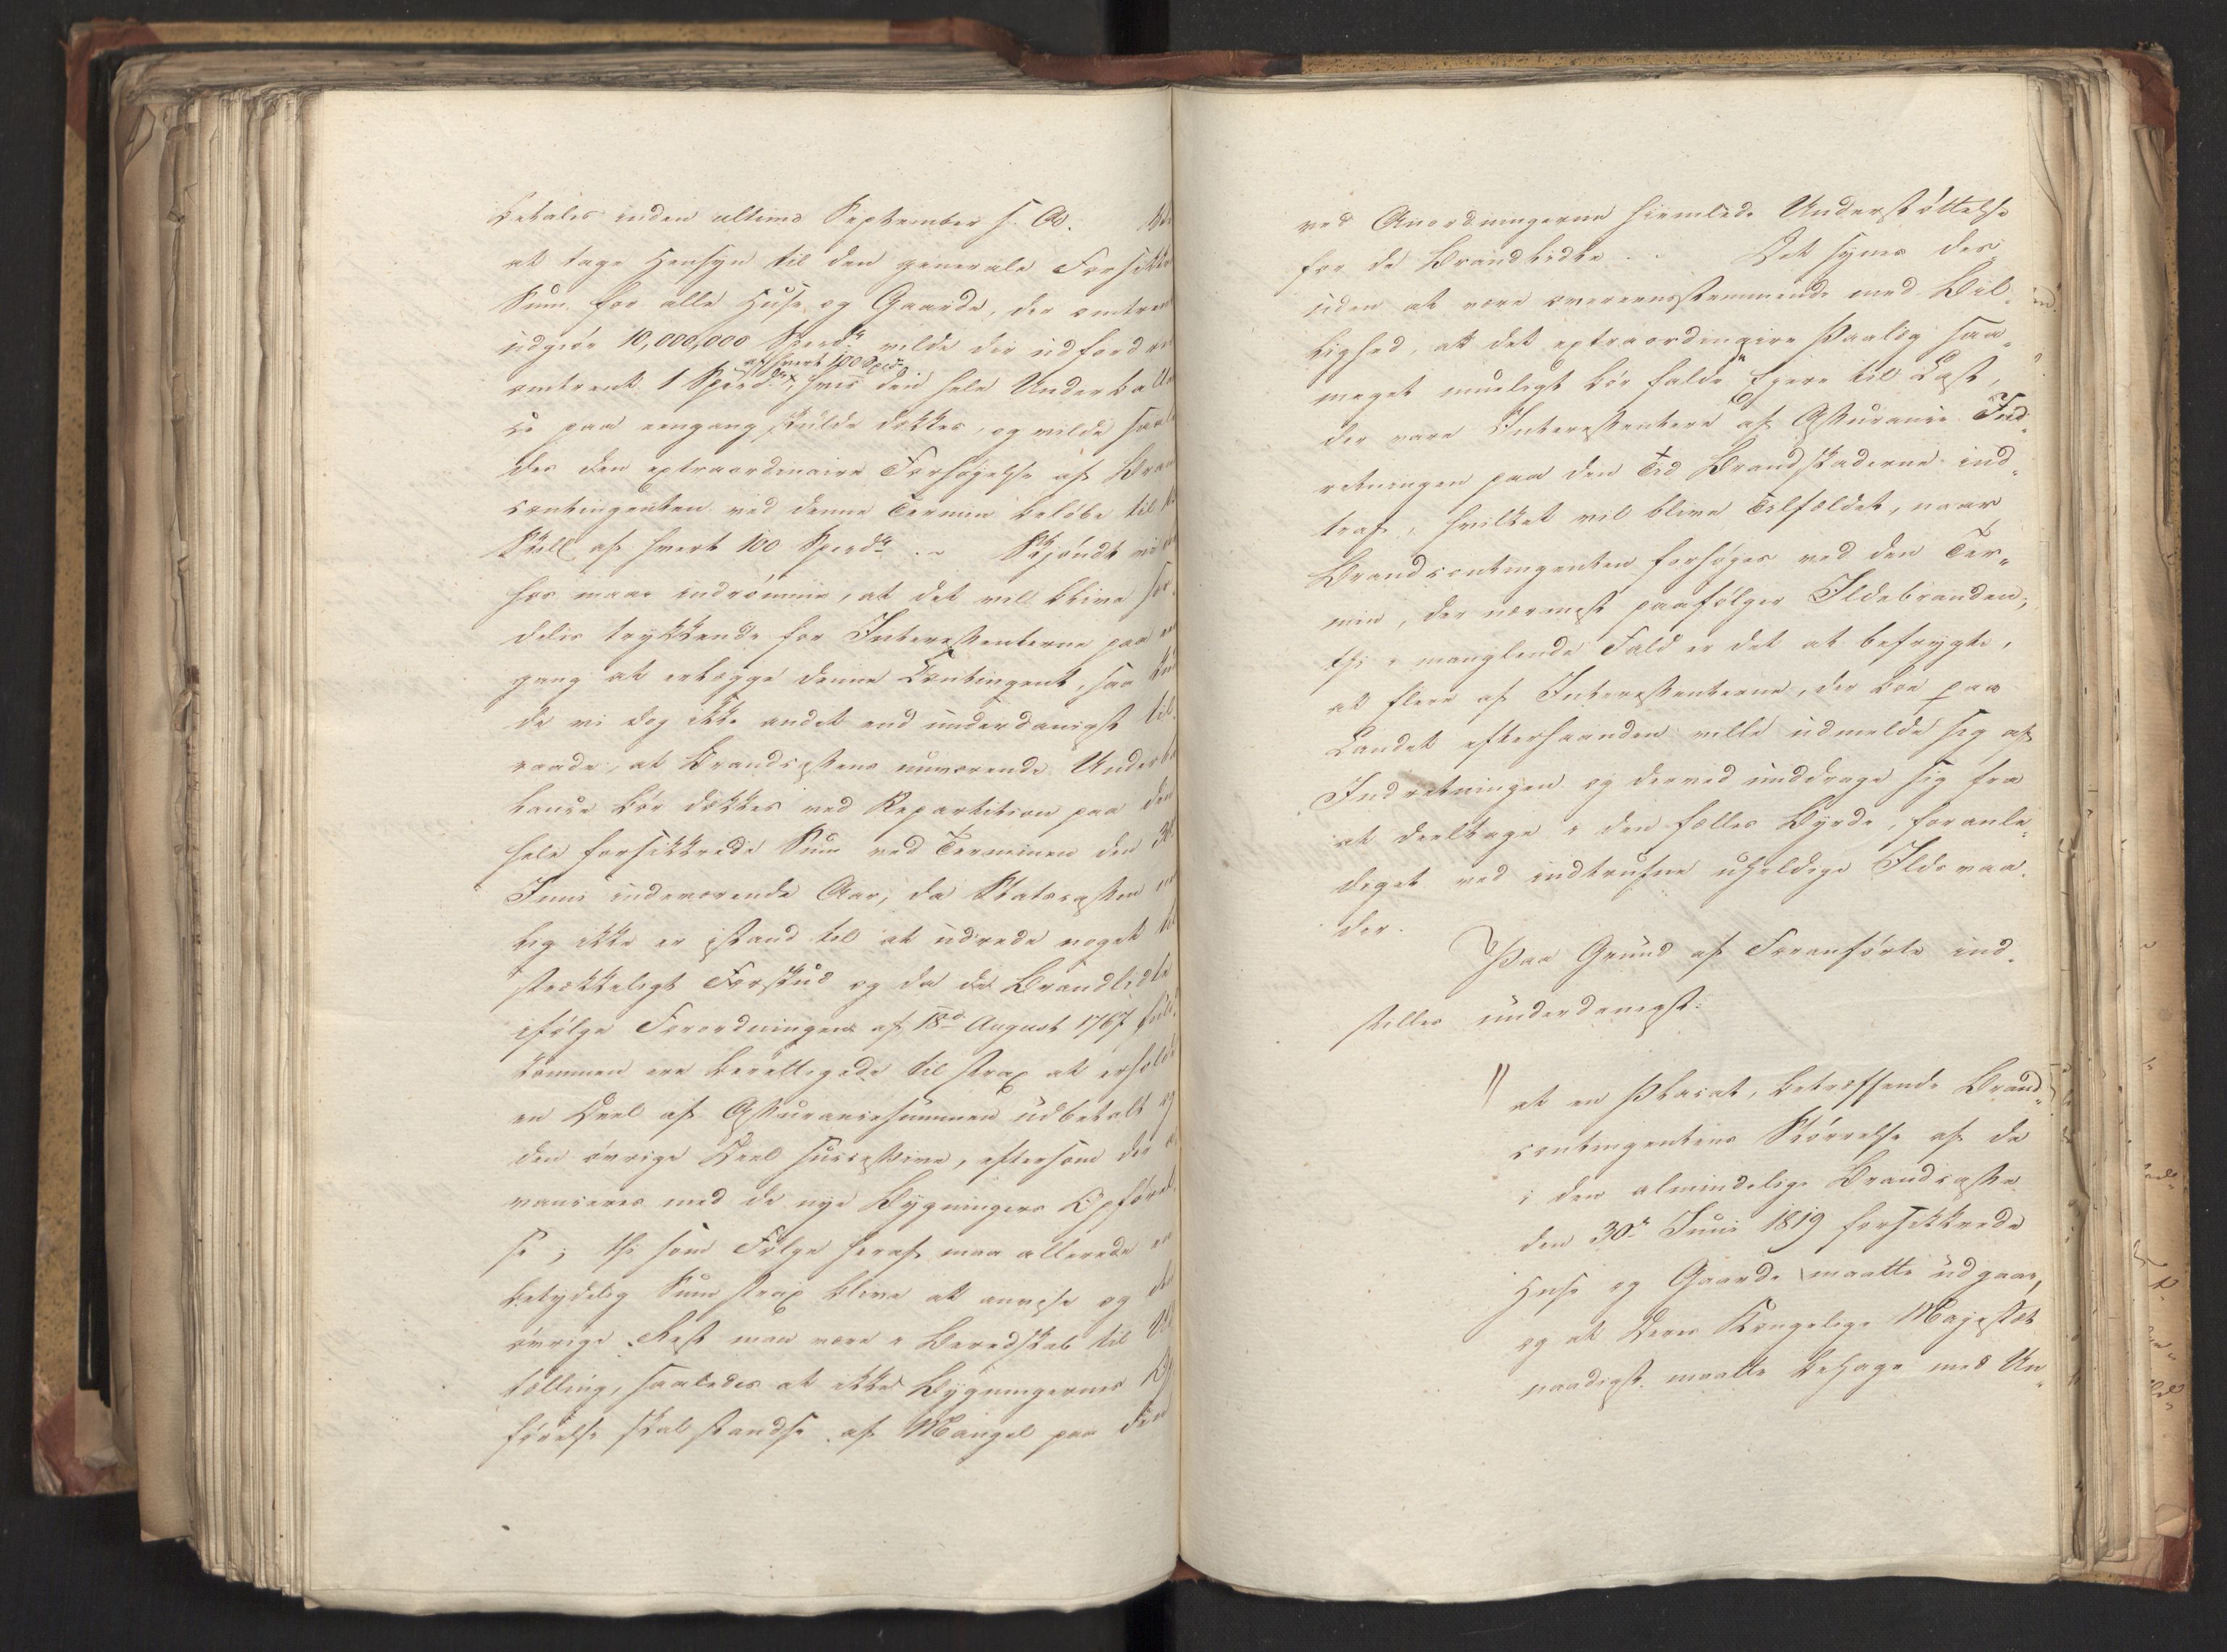 betales inden ultimo September s. A.
at tage Hensyn til den generale Forsikk
Sum for alle Huse og Gaarde, der omtren
udgiør 10,000,000 Spd vilde der udfordre
af hvert 100 Spd
omtrent 1 Spd, hvis den hele Underballe
ce paa eengang skulde dækkes, og vilde saale
des den extraordinaire Forhøyelse af Bran
contingenten ved denne Termin beløbe til
Skill af hvert 100 Spd. Skjøndt vi
hos maae indrømme, at det vil blive sær
deles trykkende for Interessenterne paa een
gang at erlægge denne Contingent, saa kun
de vi dog ikke andet end underdanigst til
raade, at Brandcassens nuværende Underba
lance bør dækkes ved Repartition paa den
hele forsikkrede Sum ved Terminen den 30
Juni indeværende Aar, da Statscassen
lig ikke er istand til at udrede noget til
strækkeligt Forskud og da de Brandlidte
ifølge Forordningen af 18d August 1767 fuld
kommen ere berettigede til strax at erholde
en Deel af Assurancesummen udbetalt og
den øvrige Deel successive, eftersom der a
vanceres med de nye Bygningers Opførel
se; thi som Følge heraf maa allerede en
betydelig Sum strax blive at anvise og den
øvrige Rest maa være i Beredskab til Ud
tælling, saaledes at ikke Bygningernes Op
førelse skal standse af Mangel paa den
ved Anordningerne hiemlede Understøttelse
for de Brandlidte. Det synes des
uden at være overeensstemmende med Bil„
lighed, at det extraordinaire Paalæg saa„
meget mueligt bør falde Ejere til Last,
der vare Interessentere af Assurance Ind„
retningen paa den Tid Brandskaderne ind„
traf, hvilket vil blive Tilfældet, naar
Brandcontingenten forhøges ved den Ter„
min, der nærmest paafølger Ildebranden;
thi i manglende Fald er det at befrygte,
at flere af Interessenterne, der boe paa
Landet efterhaanden ville udmelde sig af
Indretningen og derved unddrage sig fra
at deeltage i den fælles Byrde, foranle„
diget ved indtrufne uheldige Ildsvaa„
der.
Paa Grund af Foranførte ind„
stilles underdanigst:
" at en Placat, betræffende Brand„
contingentens Størrelse af de
i den almindelige Brandcasse
den 30te Juni 1819 forsikkrede
Huse og Gaarde maatte udgaae,
og at Deres Kongelige Majestæt
naadigst maatte behage med Un„